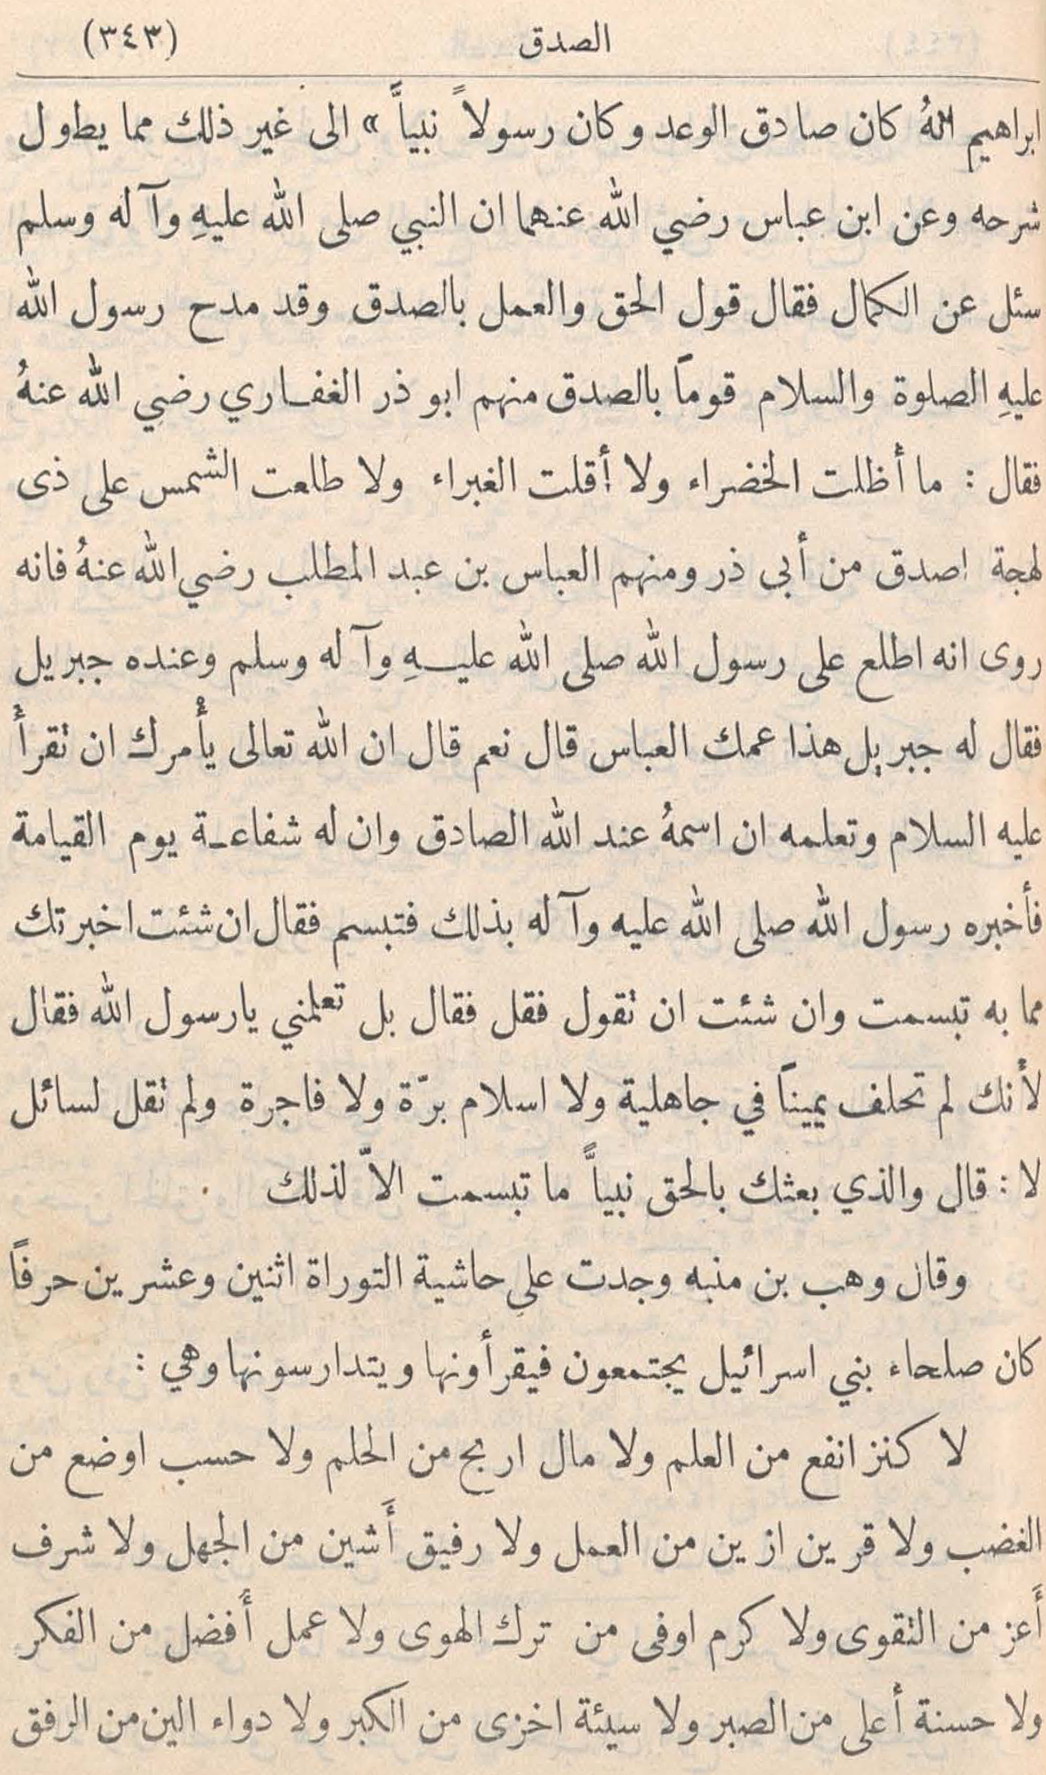 الصدق (٣٤٣)
ابراهيم انهُ كان صادق الوعد وكان رسولاً نبياً » الى غير ذلك مما يطول
شرحه وعن ابن عباس رضي الله عنهما ان النبي صلى الله عليهِ وآله وسلم
سئل عن الكمال فقال قول الحق والعمل بالصدق وقد مدح رسول الله
عليهِ الصلوة والسلام قوماً بالصدق منهم ابو ذر الغفاري رضي الله عنهُ
فقال : ما أظلت الخضراء ولا أقلت الغبراء ولا طلعت الشمس على ذى
لهجة اصدق من أبى ذر ومنهم العباس بن عبد المطلب رضي الله عنهُ فانه
روى انه اطلع على رسول الله صلى الله عليهِ وآله وسلم وعنده جبريل
فقال له جبريل هذا عمك العباس قال نعم قال ان الله تعالى يأْمرك ان تقرأَ
عليه السلام وتعلمه ان اسمهُ عند الله الصادق وان له شفاعة يوم القيامة
فأخبره رسول الله صلى الله عليه وآله بذلك فتبسم فقال ان شئت اخبرتك
مما به تبسمت وان شئت ان تقول فقل فقال بل تعلمني يارسول الله فقال
لأنك لم تحلف يميناً في جاهلية ولا اسلام برّة ولا فاجرة ولم تقل لسائل
لا : قال والذي بعثك بالحق نبياً ما تبسمت الاّ لذلك
وقال وهب بن منبه وجدت على حاشية التوراة اثنين وعشرين حرفاً
كان صلحاء بني اسرائيل يجتمعون فيقرأونها ويتدارسونها وهي :
لا كنز انفع من العلم ولا مال اربح من الحلم ولا حسب اوضع من
الغضب ولا قرين ازين من العمل ولا رفيق أَشين من الجهل ولا شرف
أَعز من التقوى ولا كرم اوفى من ترك الهوى ولا عمل أَفضل من الفكر
ولا حسنة أعلى من الصبر ولا سيئة اخزى من الكبر ولا دواء الين من الرفق